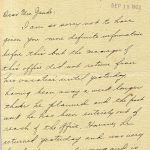 SEP 13 1923
Dear Mrs. Gault:
I am so sorry not to have
given you more definite information
before this but the manager of
this office did not return from
his vacation until yesterday
having been away a week longer
than he planned and the fact
that he has been entirely out of
reach of the office. Having he
returned yesterday and was very